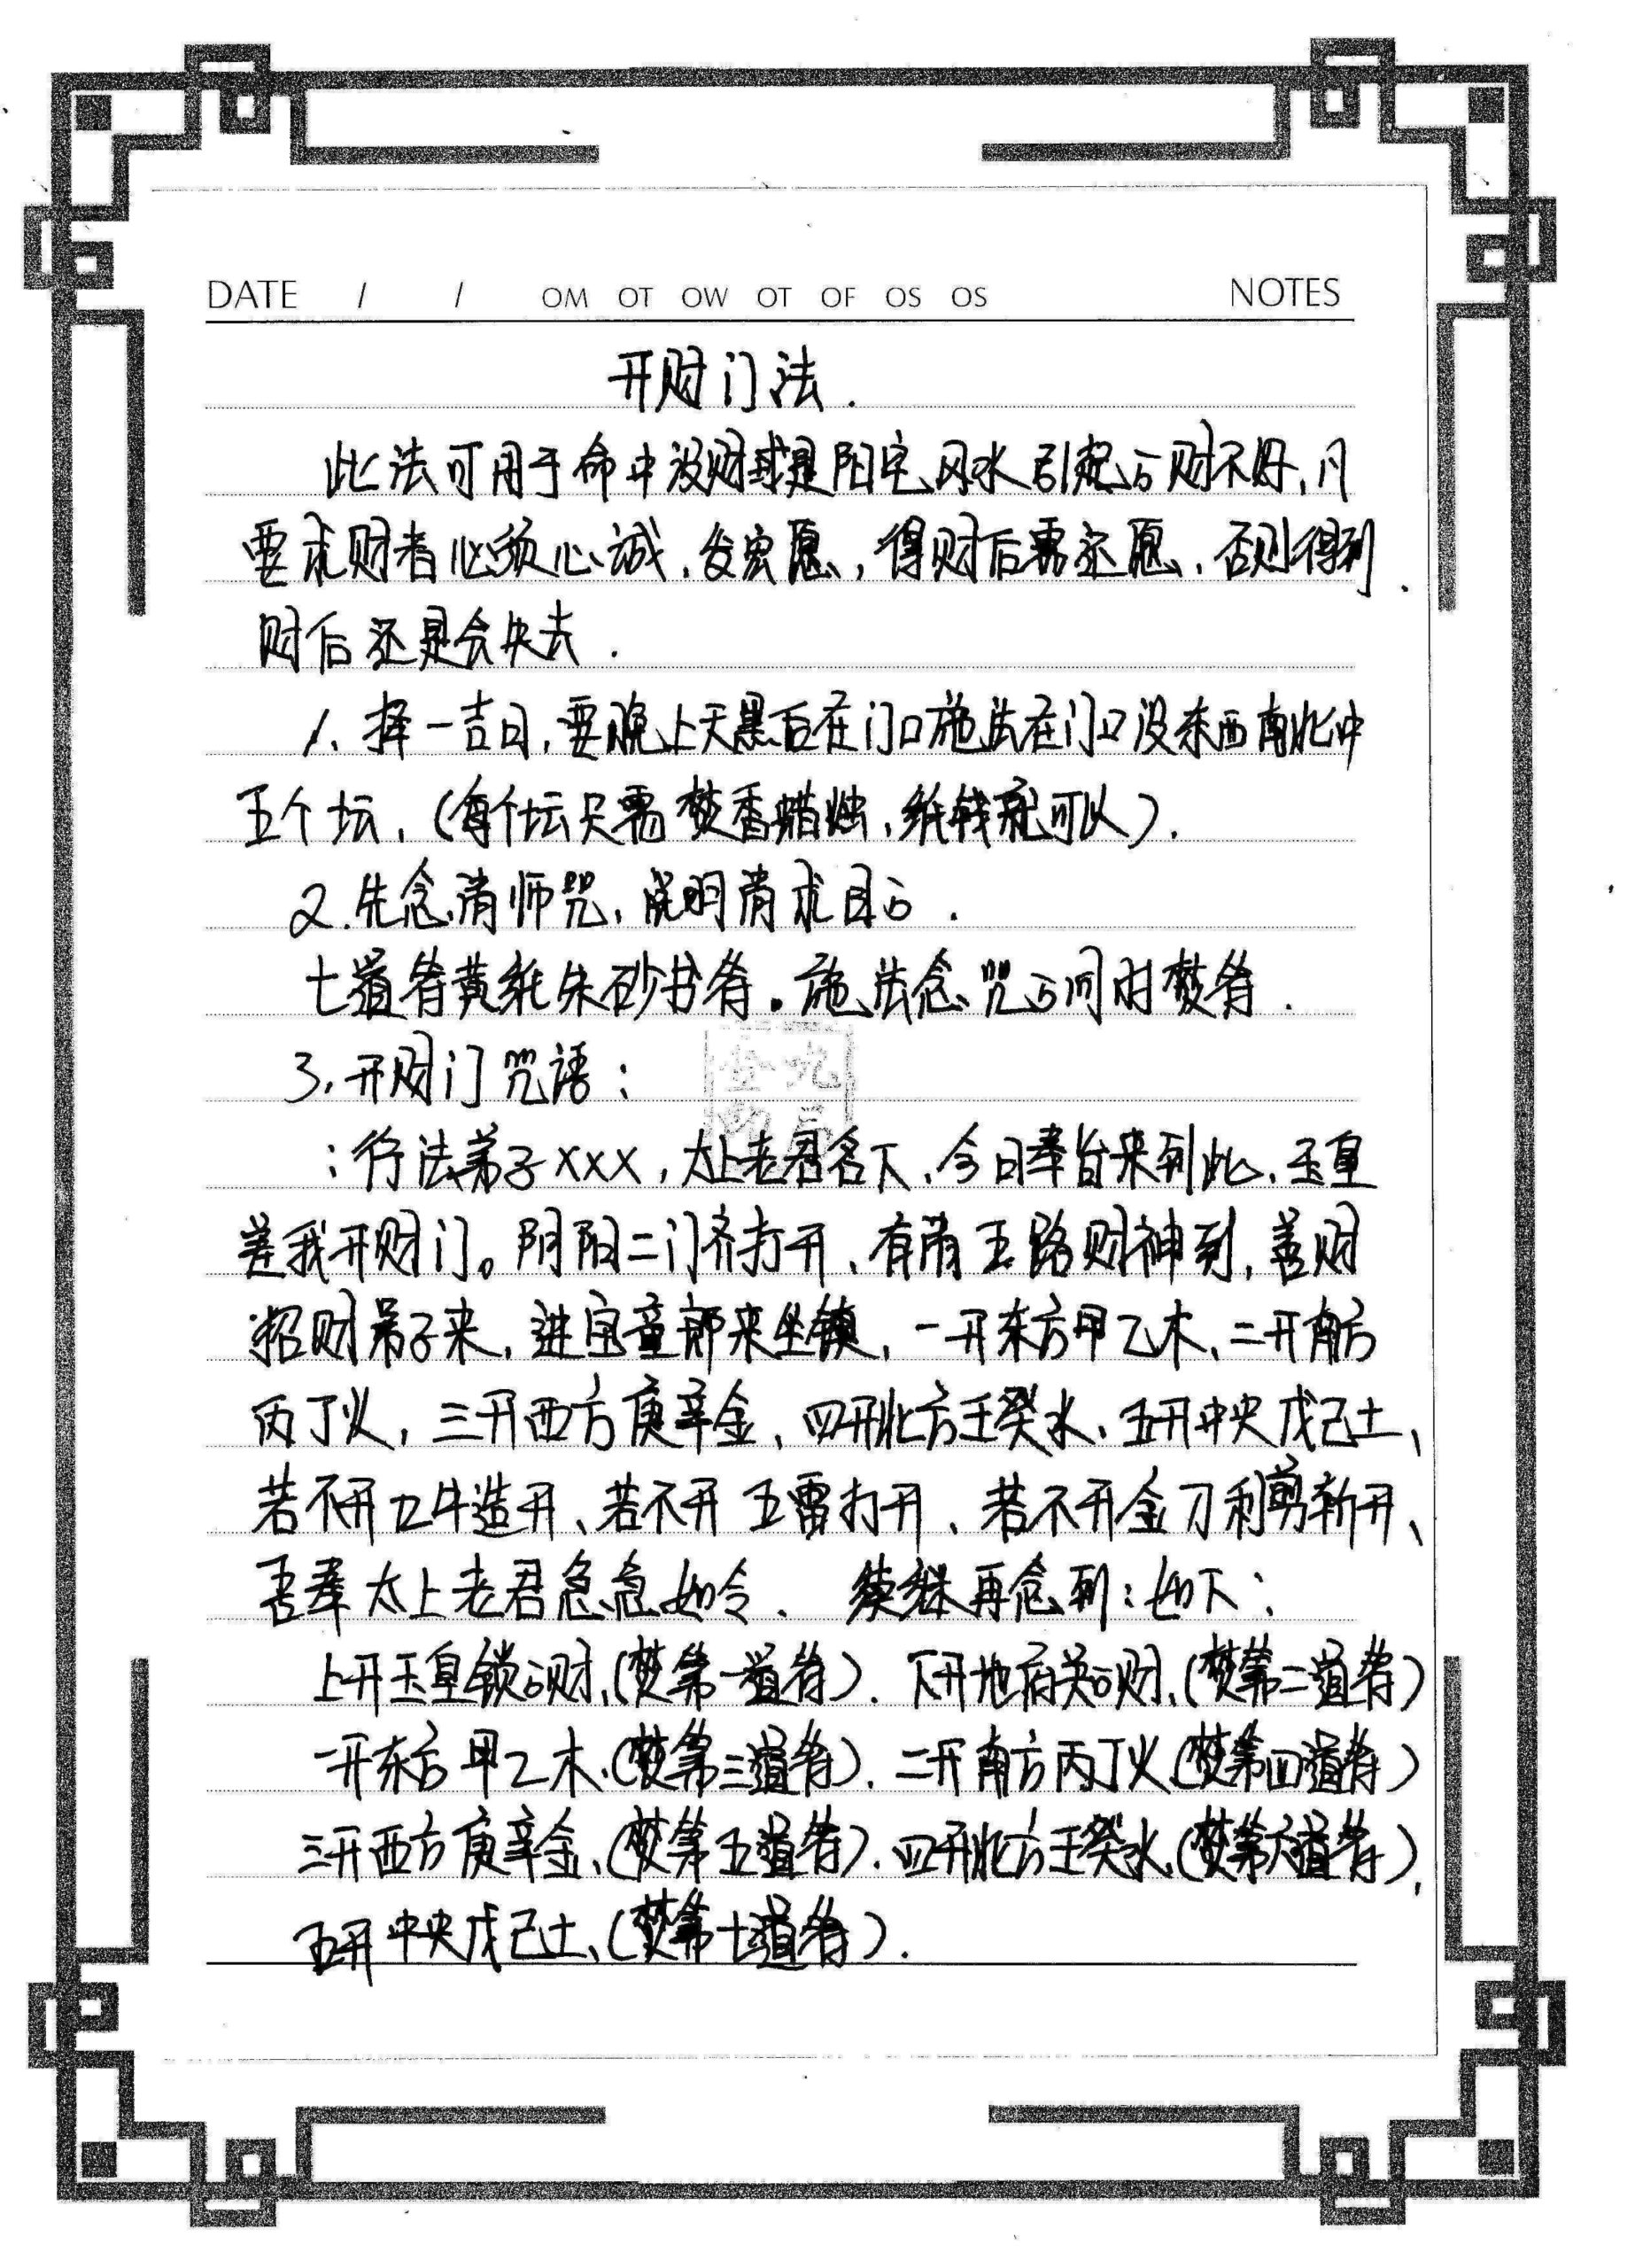 DATE / / OM OT OW OT OF OS OS NOTES
开财门法.
此法可用于命中没财或是阳宅风水引起的财不好,凡
要求财者必须心诚,发宏愿,得财后需还愿,否则得到
财后还是会失去.
1、择一吉日,要晚上天黑后在门口施法在门口设东西南北中
五个坛,(每个坛只需焚香蜡烛,纸钱就可以).
2.先念请师咒,说明请求目的.
七道符黄纸朱砂书符。施法念咒的同时焚符.
3,开财门咒语:
:行法弟子XXX,太上老君名下,今日奉旨来到此,玉皇
差我开财门。阴阳二门齐打开、有请五路财神到,善财
招财弟子来,进宝童郎来坐镇,一开东方甲乙木、二开南方
丙丁火,三开西方庚辛金、四开北方壬癸水、五开中央戊己土、
若不开九牛造开、若不开五雷打开、若不开金刀利剪斩开、
吾奉太上老君急急如令. 续继再念到:如下:
上开玉皇锁的财,(焚第一道符). 下开地府关的财,(焚第二道符)
一开东方甲乙木、(焚第三道符). 二开南方丙丁火(焚第四道符)
三开西方庚辛金、(焚第五道符).四开北方壬癸水(焚第六道符),
五开中央戊己土、(焚第七道符).